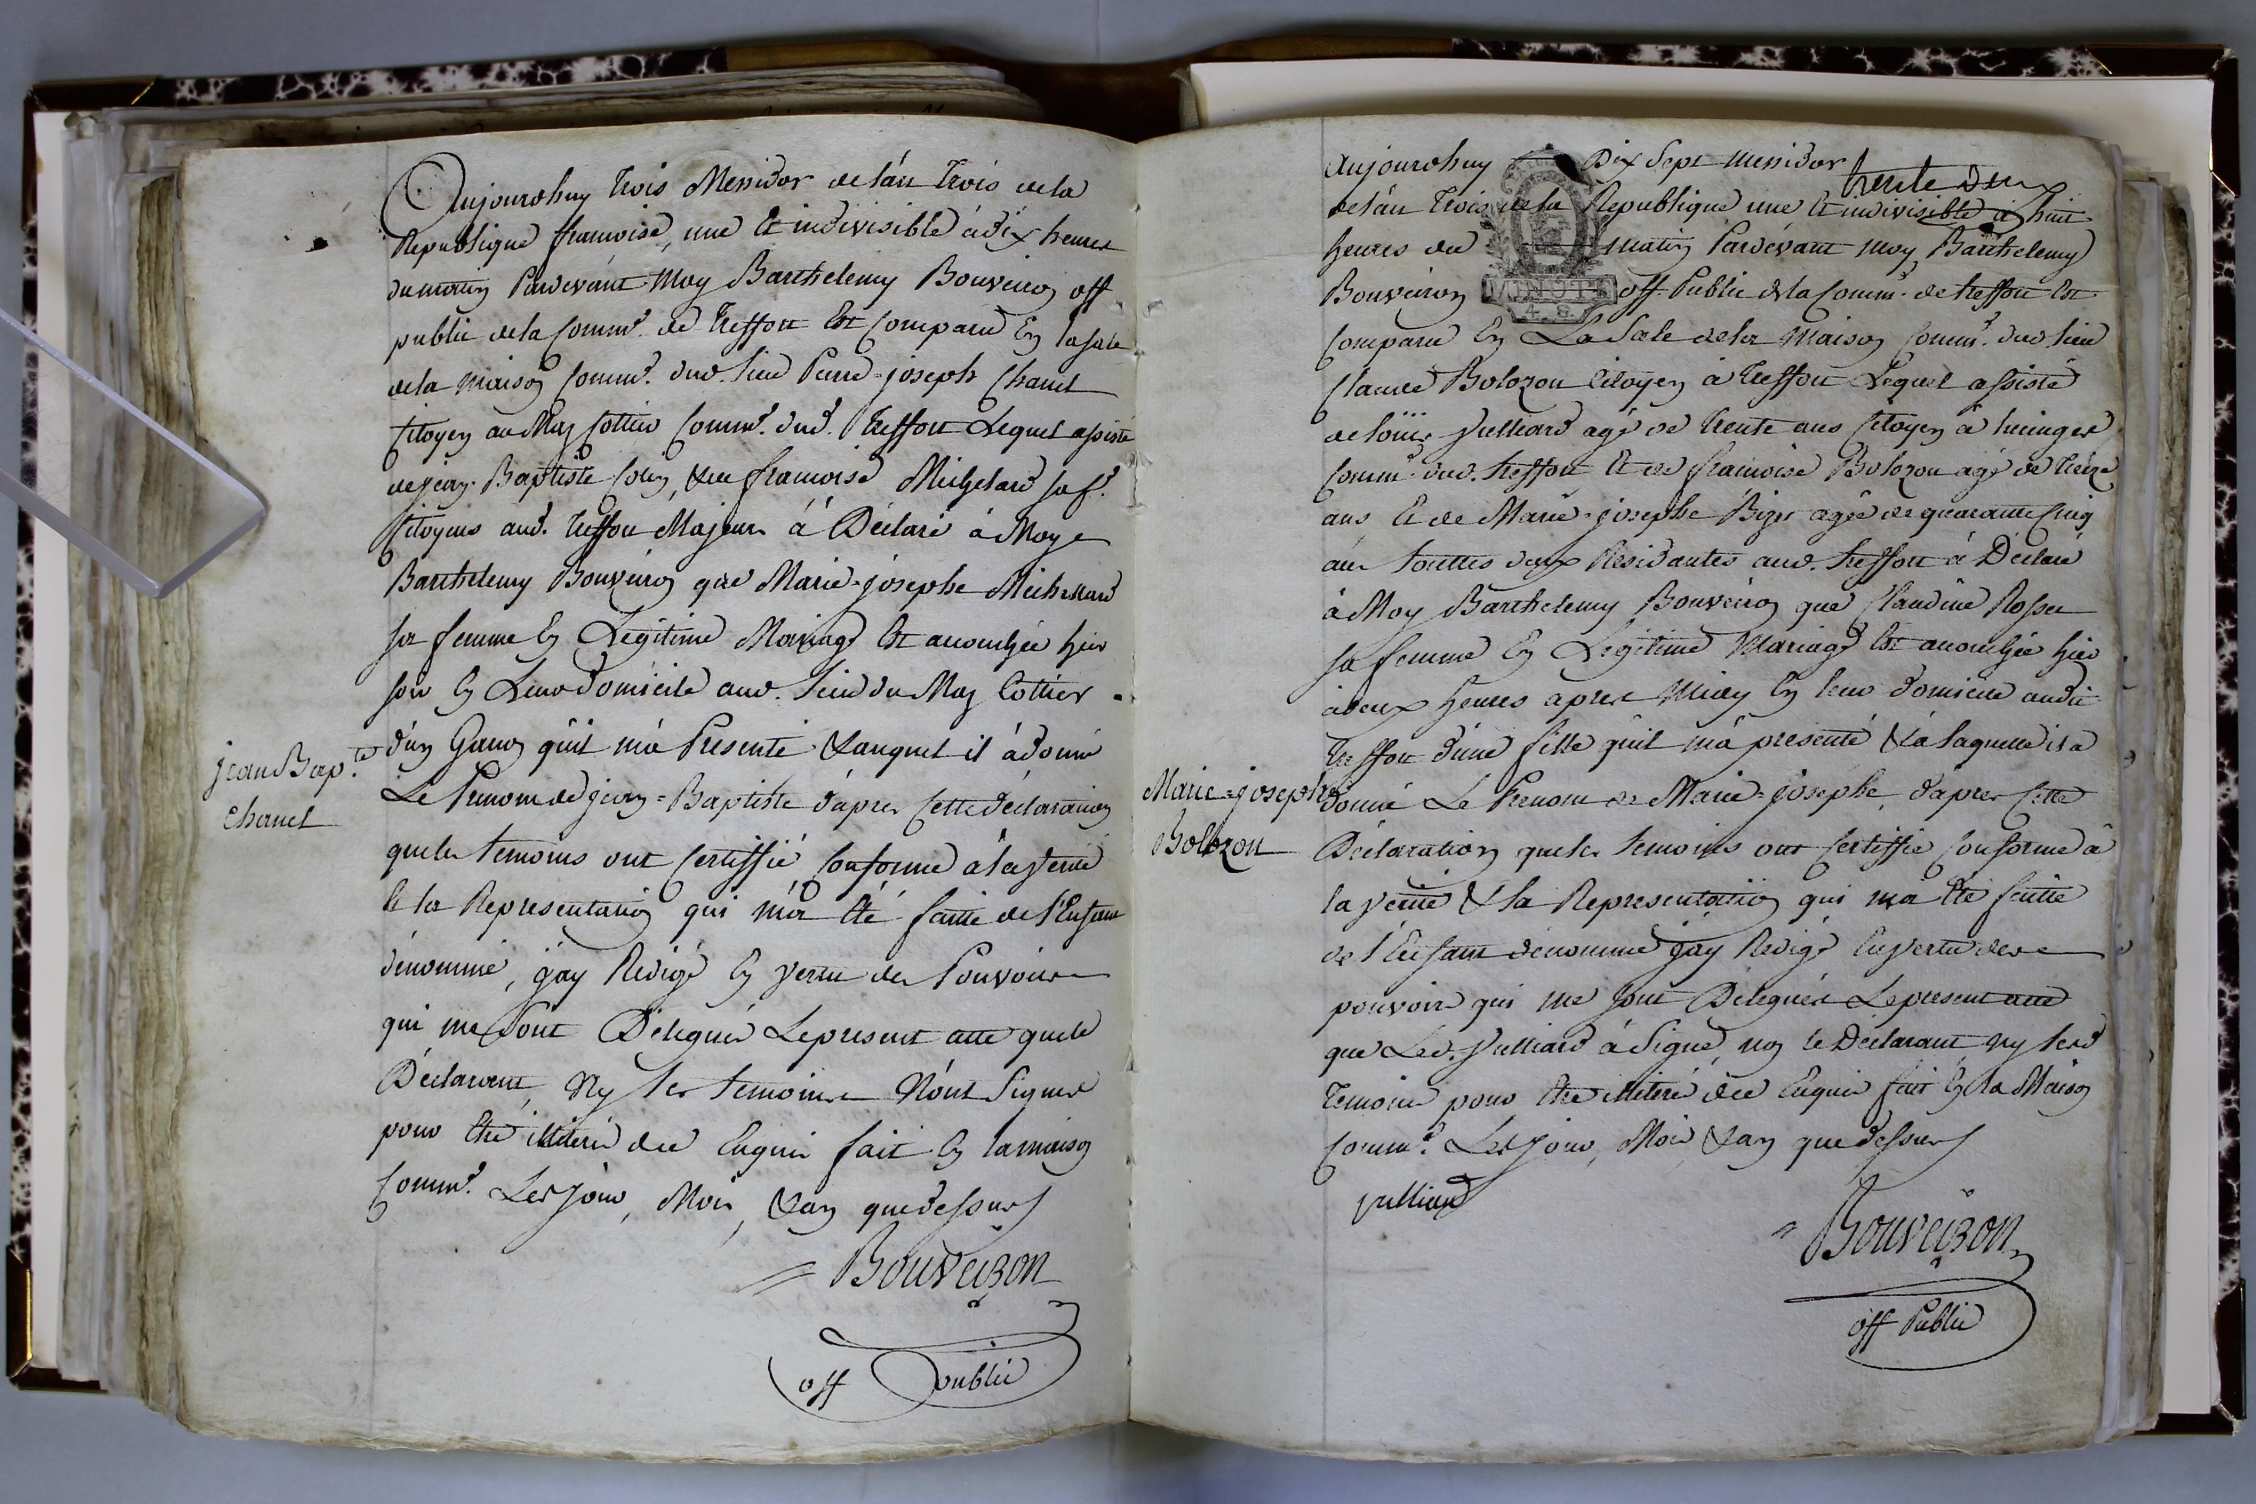 Aujourdhuy trois Messidor de l'an trois de la
Republique francoise, une et indivisible à dix heures
du matin Pardevant Moy Barthelemy Bouveiron off
public de la Comm.e de treffort Est Comparu En la sale
de la maison Comm.e dud. lieu Pierre=joseph Chanel
Citoyen au Maz Cottier Comm.e dud. treffort Lequel assisté
de jean Baptiste & de francoise Michelard sa f.e
Citoyens aud. treffort Majeurs á Déclaré á Moy
Barthelemy Bouveiron que Marie=josephe Michelard
sa femme En Legitime Mariage Est accouchée hier
soir En Leur domicile aud. lieu du Maz Cottier
d'un Garçon qu'il m'a Presenté & auquel il à donné
Le Prenom de jean=Baptiste d'apres Cette déclaration
que les temoins ont Certiffié Conforme à la verité
& la Representation qui m'a été faitte de l'Enfant
dénommé, j'ay Redigé En vertu des Pouvoirs
qui me sont Délégués Le present acte que le
Déclarant, Ny les temoins N'ont Signé
pour être illiteré de ce Enquis fait En la maison
Comm.e Les Jour, Mois, & an que dessus
Bouveiron
off public
jean Bap.te
Chanel
Aujourdhuy Dix Sept Messidor
trente deux
de l'an trois de la Republique une et indivisible à huit
heures du matin Pardevant moy Barthelemy
Bouveiron off. Public de la Comm.e de treffort Est
MINUTE
4. S.
Comparu En La Sale de la Maison Comm.e dud. lieu
Claude Bolozon Citoyen à treffort Lequel assisté
de loüis Julliard agé de trente ans Citoyen à
Comm.e dud. treffort Et de francoise Bolozon agé de treize
ans Et de Marie=josephe agée de quarante Cinq
ans touttes deux Residantes aud. treffort à Déclaré
à Moy Barthelemy Bouveiron que Claudine Rosset
sa femme En Legitime Mariage Est accouchée hier
à deux heures apres Midy En leur domicile audit
treffort d'une fille qu'il m'a presenté & à laquelle il a
donné Le Prenom de Marie=josephe, d'apres Cette
Déclaration que les temoins ont Certiffié Conforme à
la verité & la Representation qui m'a été faitte
de l'Enfant dénommé j'ay Redigé En vertu des
pouvoirs qui me sont Delegués Le present acte
que Led. Julliard à Signé, non le Déclarant ny les d
temoins pour être illiteré de ce Enquis fait En la Maison
Comm.e Les Jour, Mois, & an que dessus
Julliard
Bouveiron
off Public
Marie=josephe
Bolozon